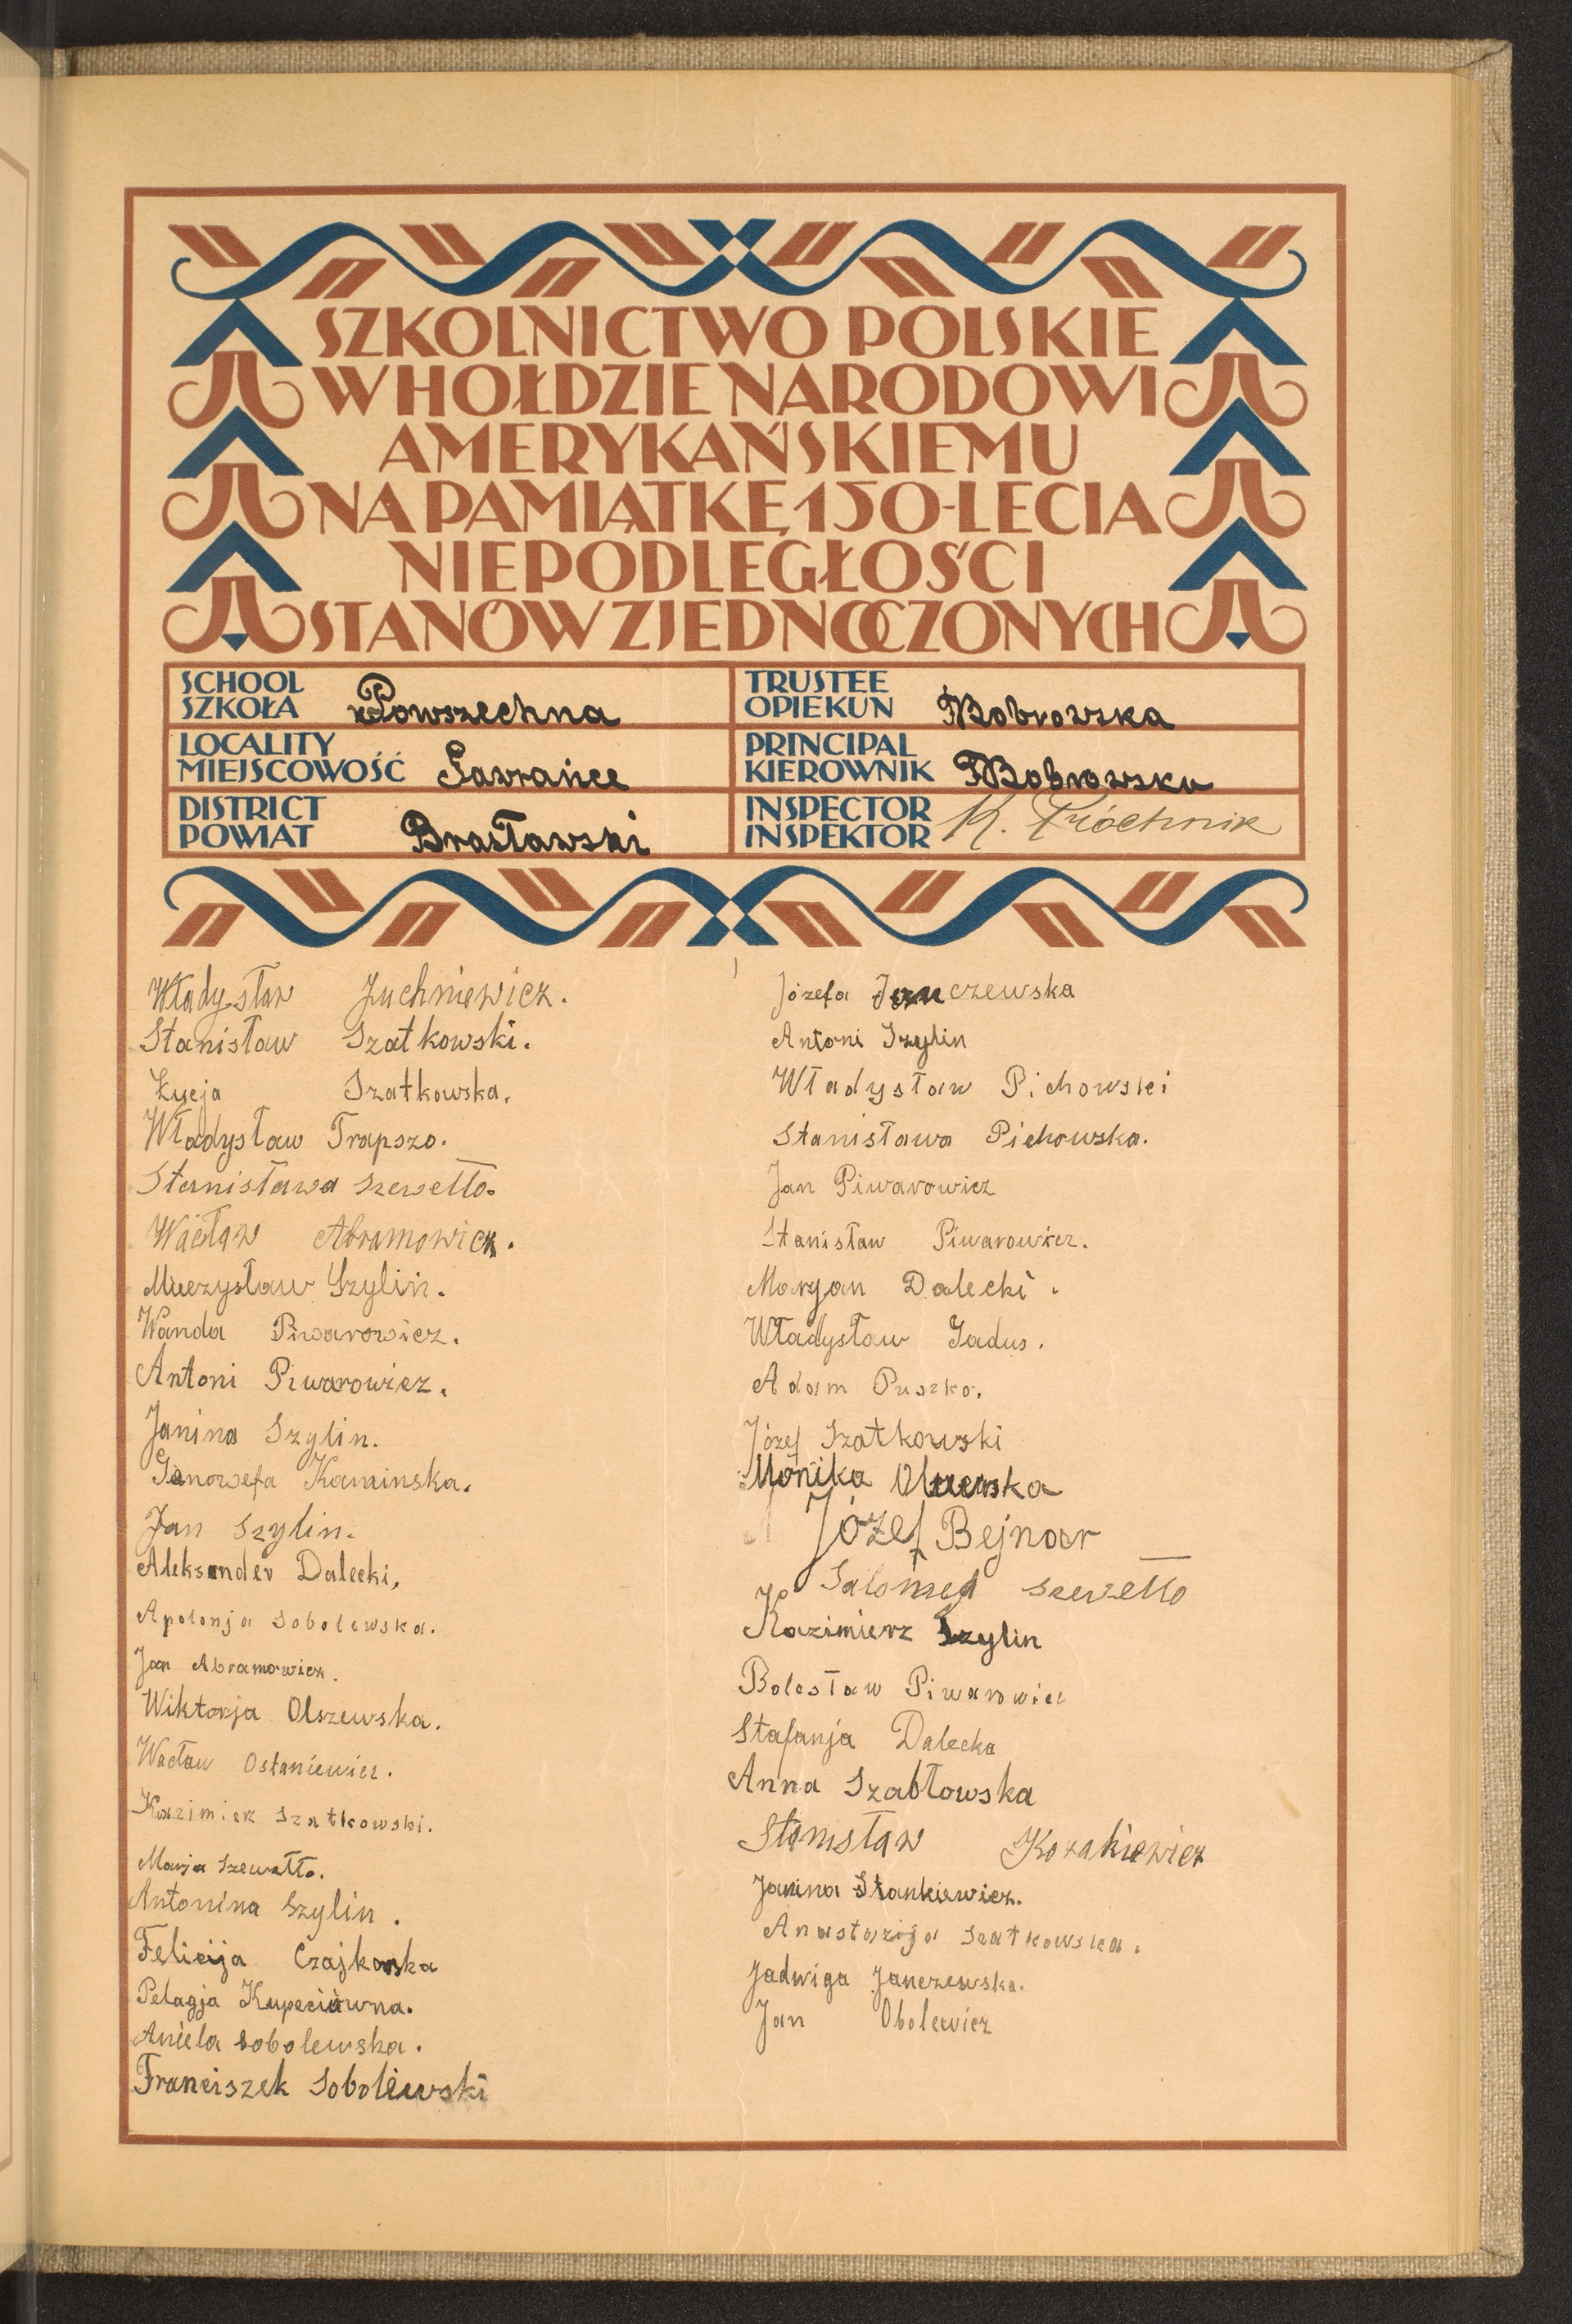 SZKOLNICTWO POLSKIE
W HOŁDZIE NARODOWI
AMERYKAŃSKIEMU
NA PAMIĄTKĘ 150-LECIA
NIEPODLEGŁOŚCI
STANÓW ZJEDNOCZONYCH
SCHOOL
SZKOŁA Powszechna
TRUSTEE
OPIEKUN MBobrowska
LOCALITY
MIEJSCOWOŚĆ Gawrańce
PRINCIPAL
KIEROWNIK MBobrowska
DISTRICT
POWIAT Brasławski
INSPECTOR
INSPEKTOR K. Próchnik
Władysław Juchniewicz.
Stanisław Szatkowski.
Łucja Szatkowska.
Władysław Trapszo.
Stanisława Szewełło.
Wacław Abramowicz.
Mieczysław Szylin.
Wanda Piwarowicz.
Antoni Piwarowicz.
Janina Szylin.
Genowefa Kaminska.
Jan Szylin.
Aleksander Dalecki,
Apolonja Sobolewska.
Jan Abramowicz.
Wiktorja Olszewska.
Wacław Ostaniewicz.
Kazimiek Szatkowski.
Marja Szewełło.
Antonina Szylin.
Felicija Czajkowska
Pelagja Kupeciówna.
Aniela Sobolewska.
Franciszek Sobolewski
Józefa Janczewska
Antoni Szylin
Władysław Pichowski
Stanisława Pichowska.
Jan Piwarowicz
Stanisław Piwarowicz.
Maryan Dalecki.
Władysław Gadus.
Adam Puszko.
Józef Szatkowski
Monika Olszewska
Józef Bejnar
Salomea Szewełło
Kazimierz Szylin
Bolesław Piwarowicz
Stafanja Dalecka
Anna Szabłowska
Stanisław Kozakiewicz
Janina Stankiewicz.
Anastazija Szatkowska.
Jadwiga Janczewska.
Jan Obolewicz